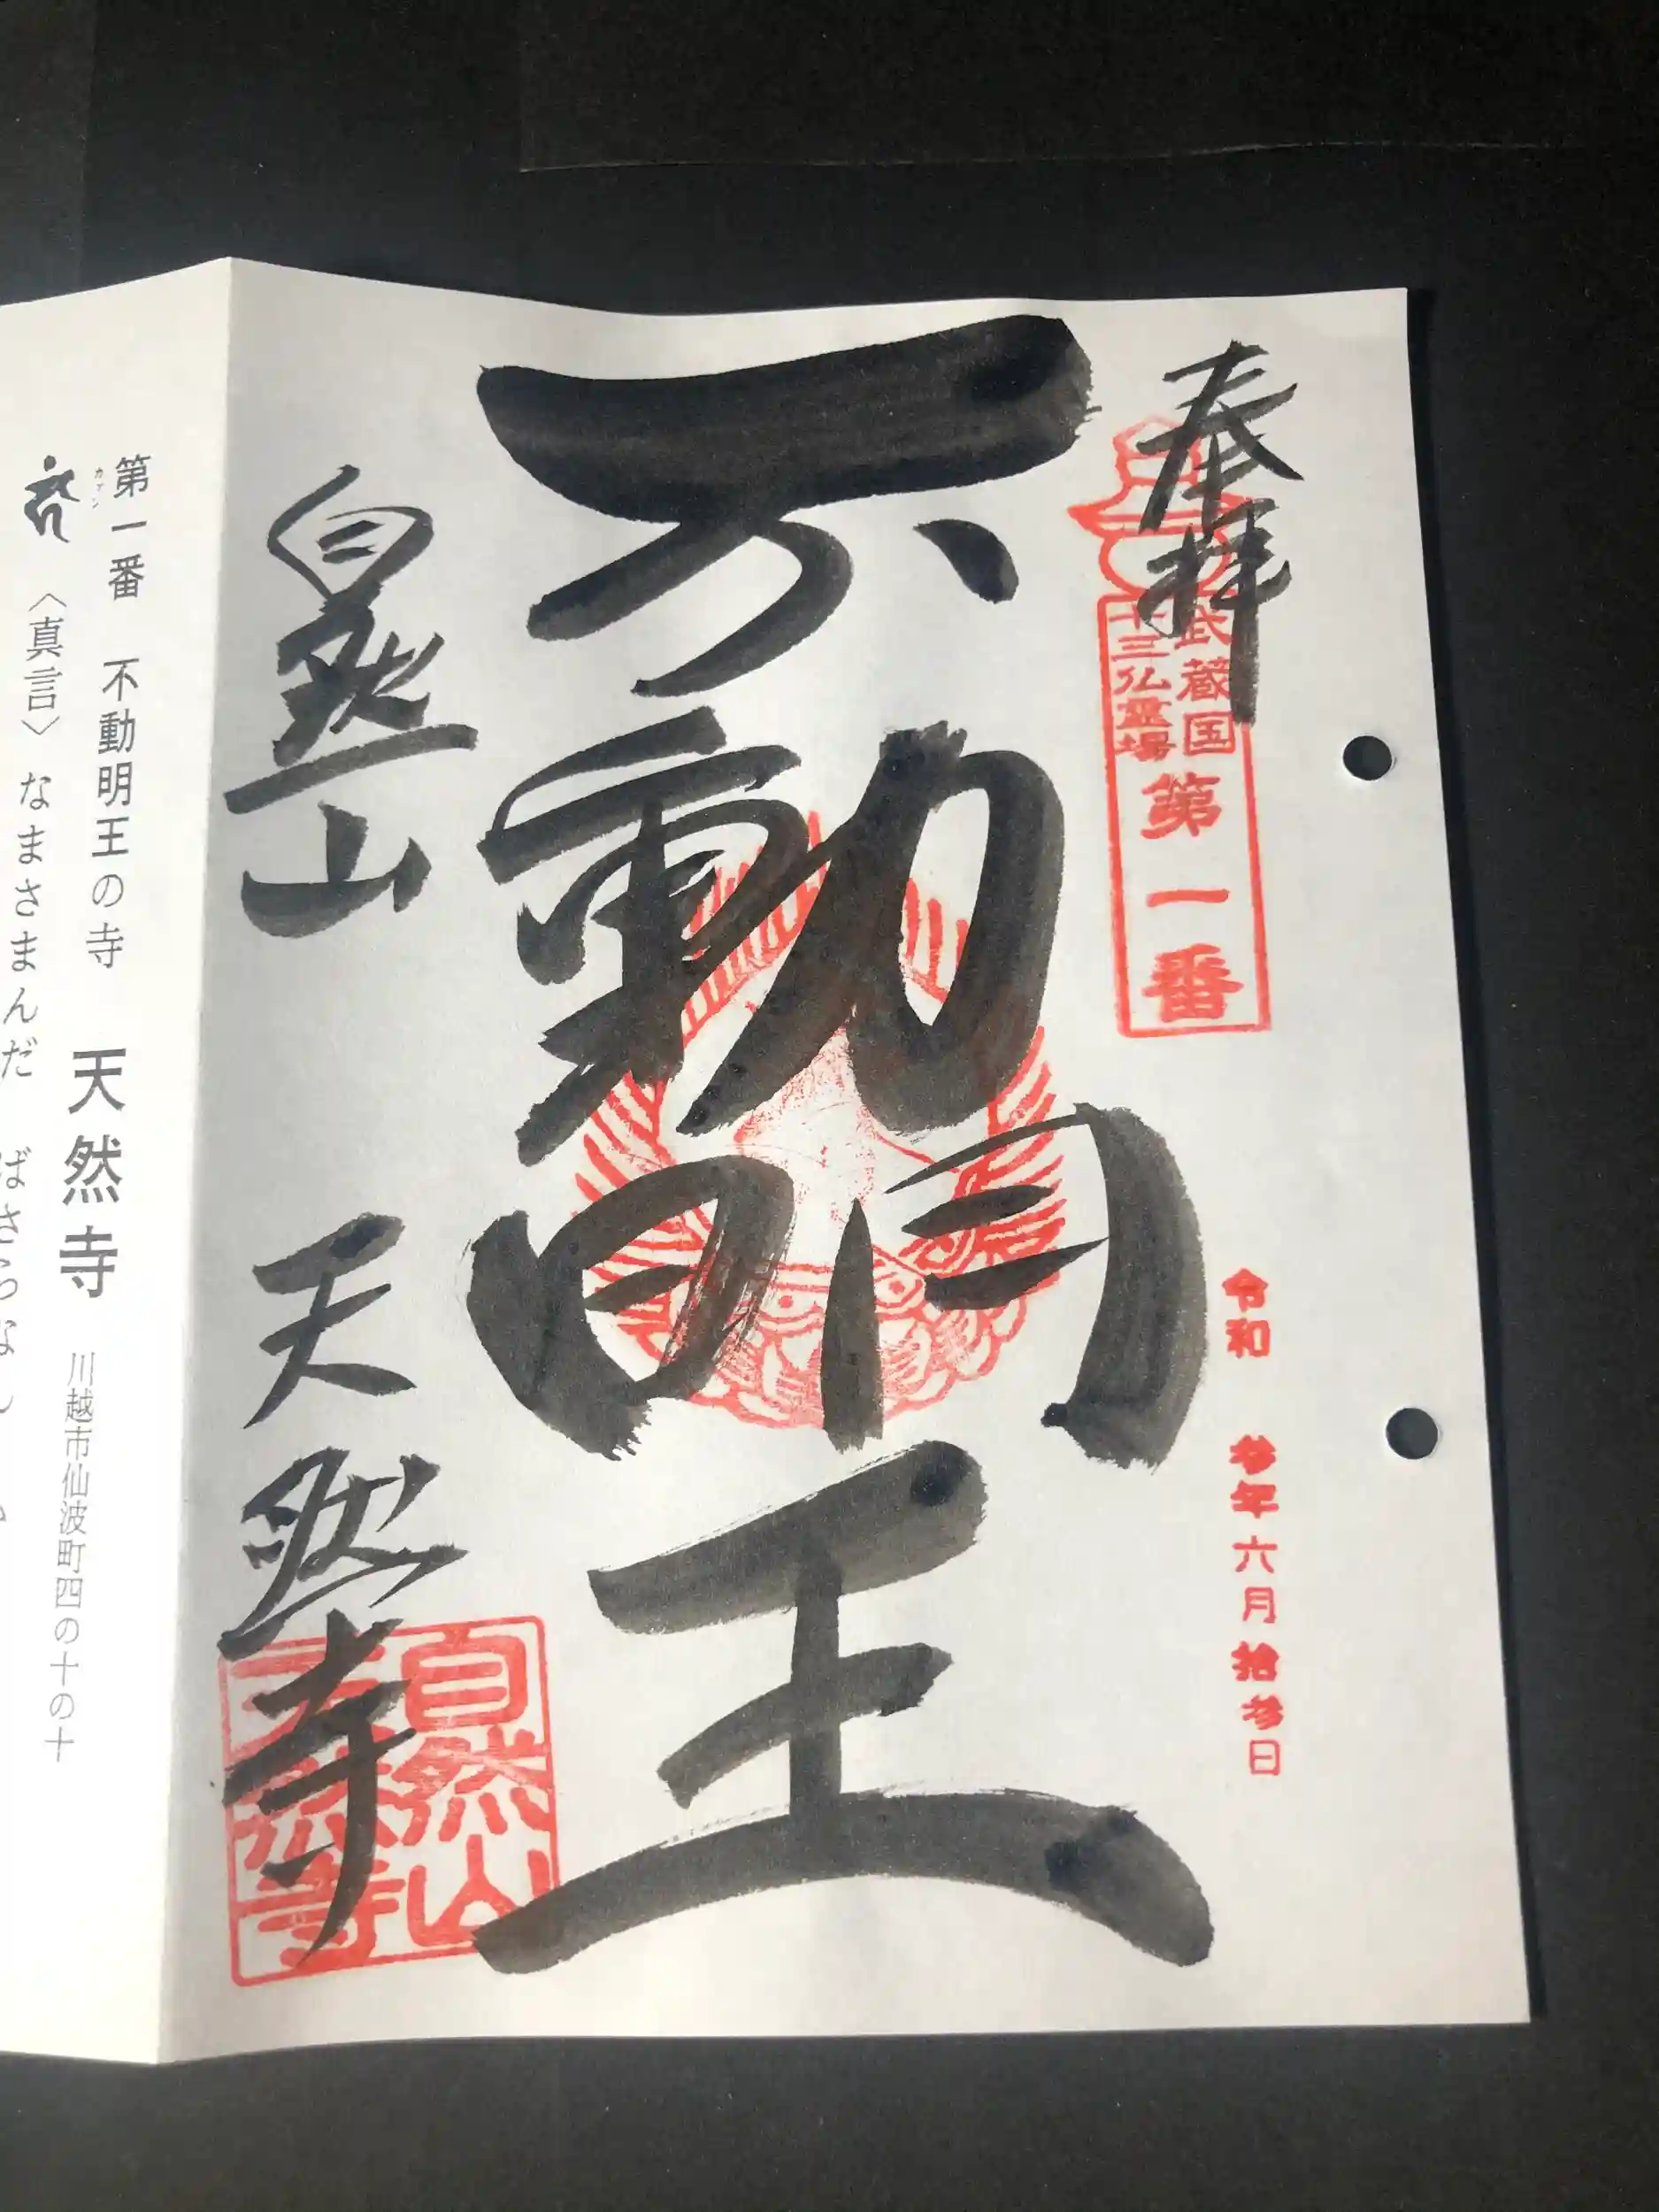 奉拝
武蔵国
十三仏霊場
第一番
令和 参年六月拾参日
不動明王
自然山 天然寺
自然山
天然寺
第一番 不動明王の寺 天然寺 川越市仙波町四の十の十
カアン
〈真言〉 なまさまんだ ばさらな